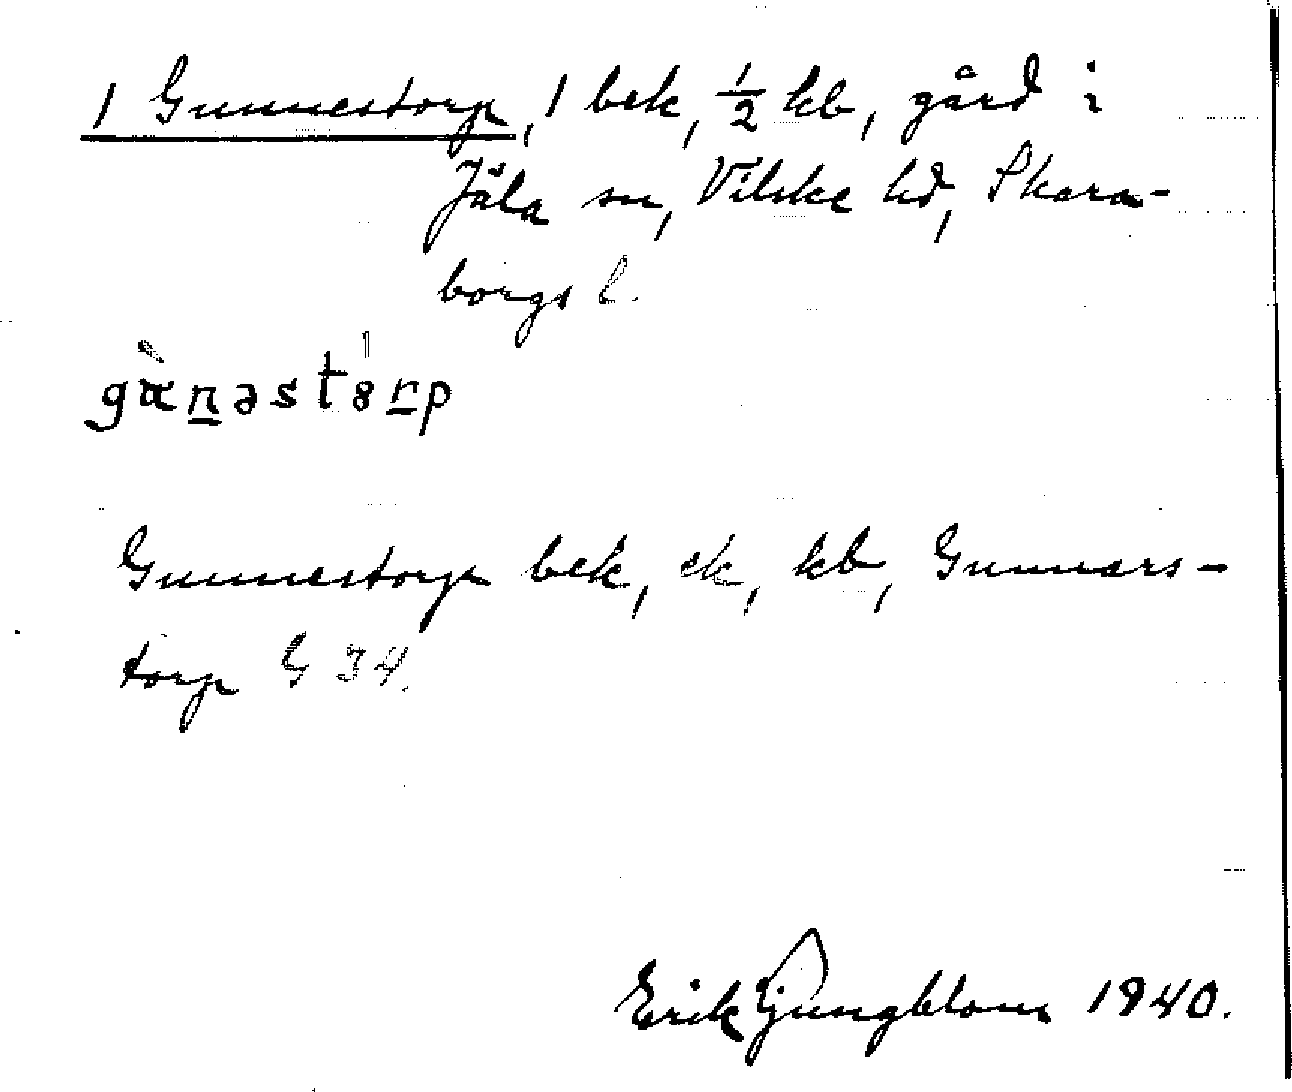 1 Gunnestorp, 1 bek, ½ kb, gård i
Jäla sn, Vilske hd, Skara-
borgs l.
gänəstörp
Gunnestorp bek, ek, kb, Gunnars-
torp G 34.
Erik Ljungblom 1940.